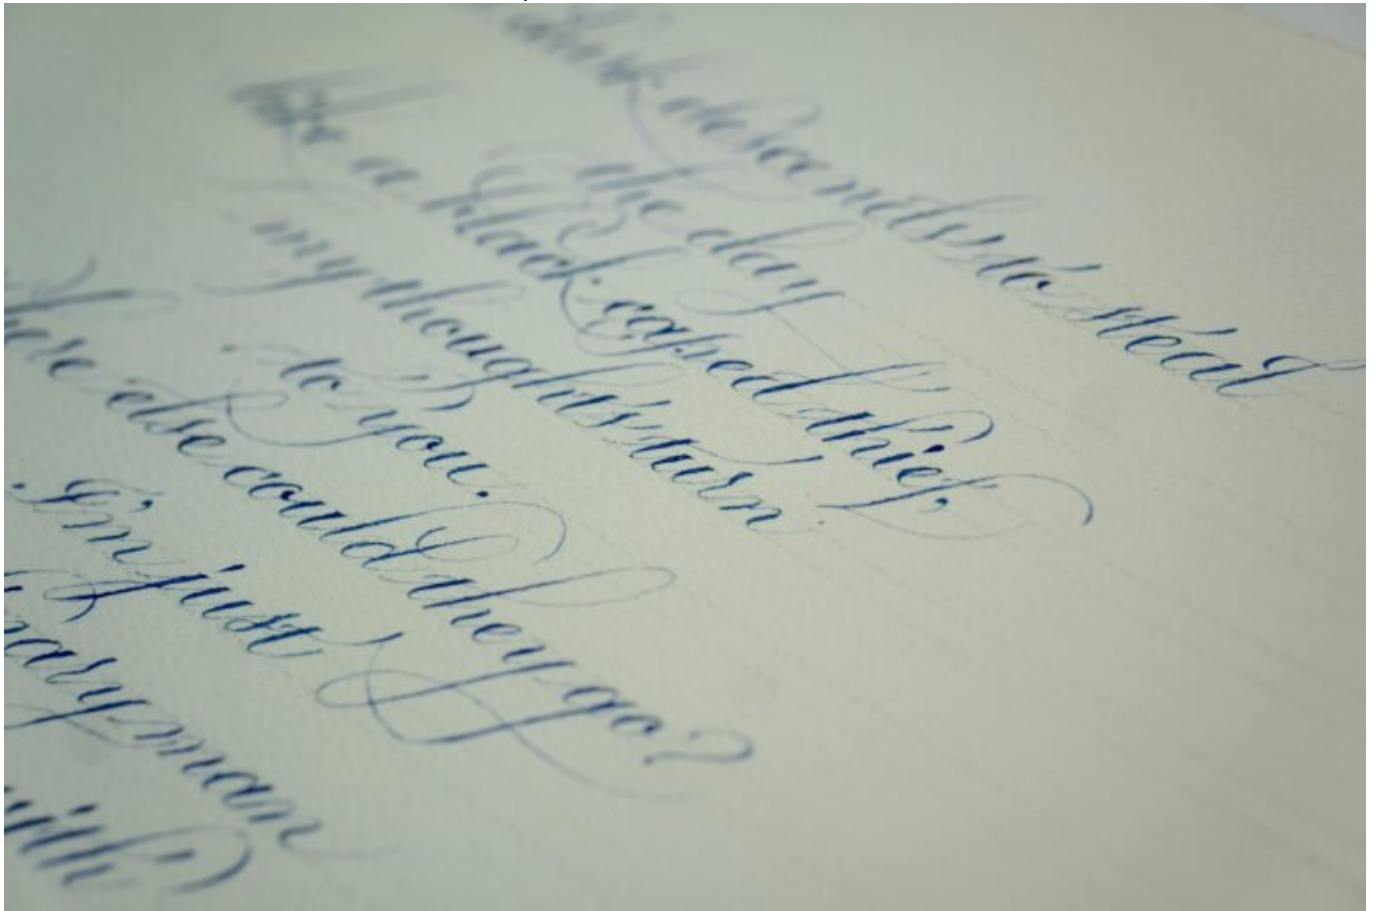 descends to steal
the day
like a black caped thief,
my thoughts turn
to you.
here else could they go?
I'm just
nary man
with